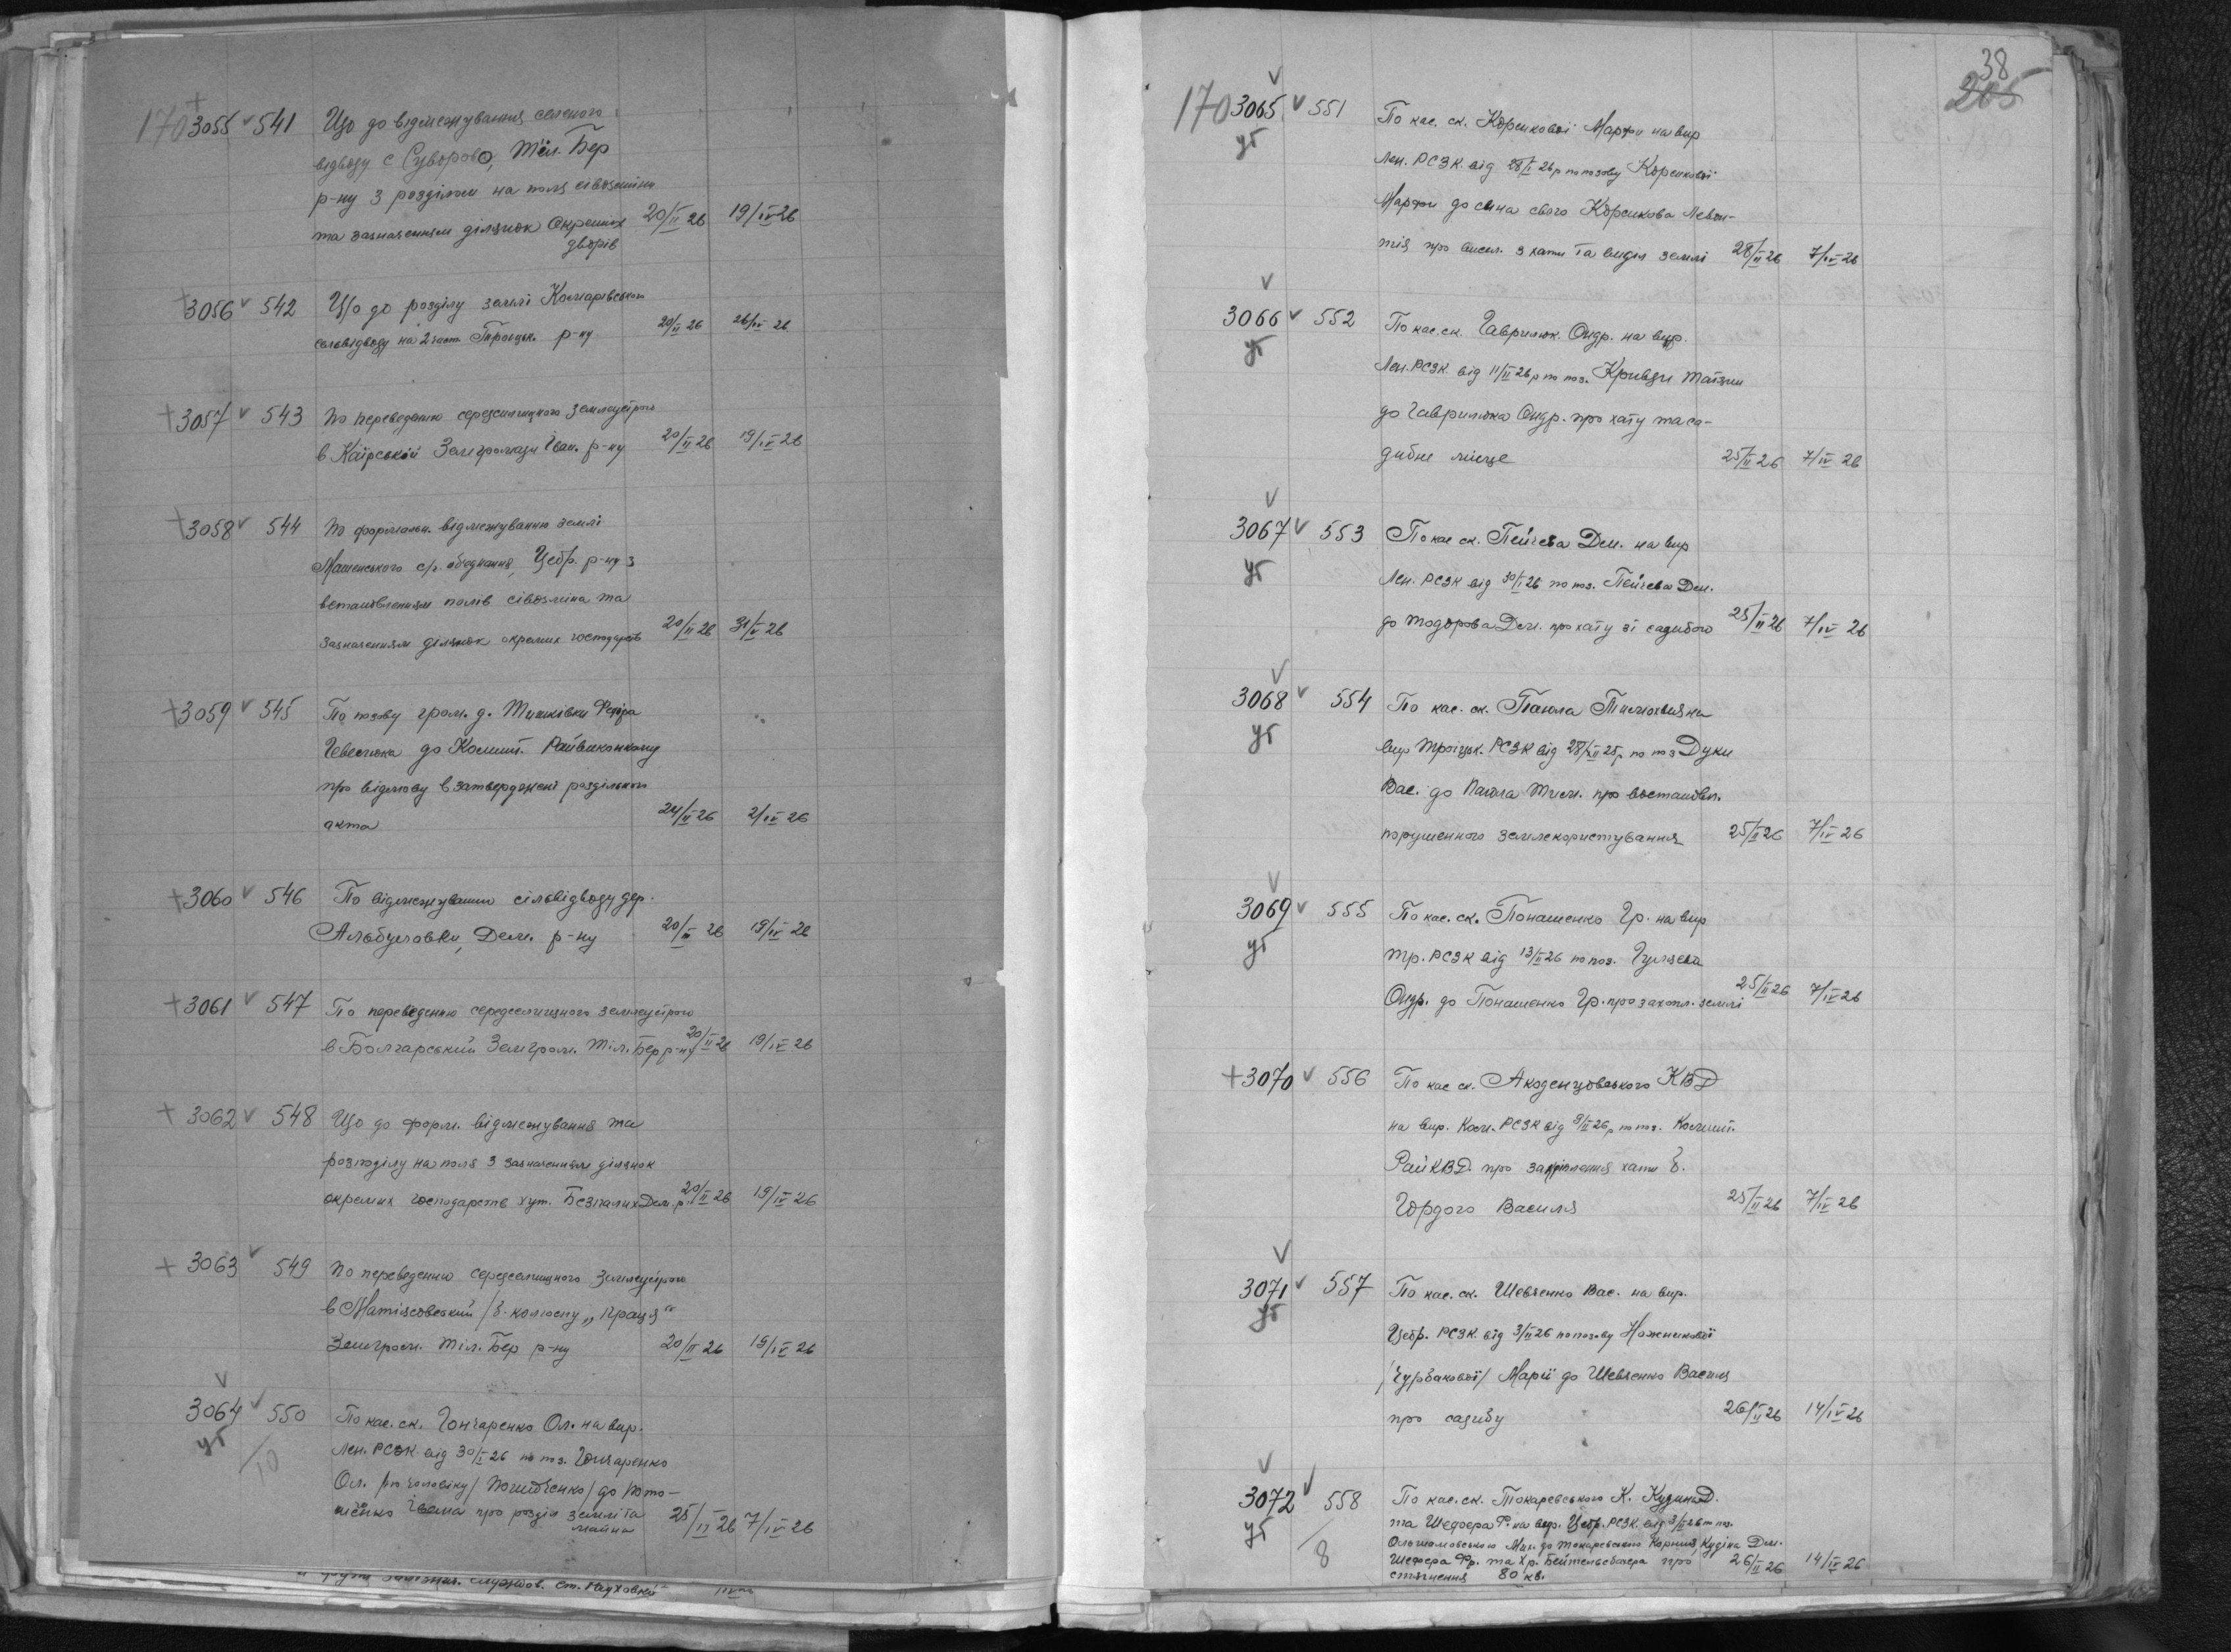 170 3055 541 Що до відмежування селеного
відводу с Суворово, Тіл. Бер
р-ну з розділом на поля сівозміни
та зазначенням ділянок окремих 20/II 26 19/IV 26
дворів
3056 542 Що до розділу землі Комарівського
сельвідводу на 2 част. Троіцьк. р-ну 20/II 26 26/IV 26
3057 543 По переведенню середселищного землеустрою
в Каїрській Земгромади Іван. р-ну 20/II 26 19/IV 26
3058 544 По формальн. відмежуванню землі
с/г. обєднання, Цебр. р-ну з
встановленням полів сівозміна та
зазначенням ділянок окремих господарств 20/II 26 31/V 26
3059 545 По позову гром. д. Тишківки Федіра
до Комінт. Райвиконкому
про відмову в затверджені роздільного
акта 24/II 26 2/IV 26
3060 546 По відмежуванню сільвідводу дер.
Альбуловки, Дем. р-ну 20/II 26 19/IV 26
3061 547 По переведенню середселищного землеустрою
в Болгарський Земгром. Тіл. Бер р-ну 20/II 26 19/IV 26
3062 548 Що до форм. відмежування та
розподілу на поля з зазначенням ділянок
окремих господарств хут. Безпалих Дем. р. 20/II 26 19/IV 26
3063 549 По переведенню середселищного землеустрою
в /б. колгоспу „Праця“
Земгром. Тіл. Бер р-ну 20/II 26 19/IV 26
3064 550 По кас. ск. Гончаренко Ол. на вир.
уг 10 Лен. РСЗК від 30/I 26 по поз. Гончаренко
Ол. /по чоловіку/ до
Івана про розділ землі та 25/II 26 7/IV 26
майна
38
205
170 3065 551 По кас. ск. Корсикової Марфи на вир
уг Лен. РСЗК від 28/I 26 р по позову Корсикової
Марфи до сина свого Корсикова Леван-
тія про висел. з хати та виділ землі 28/II 26 7/IV 26
3066 552 По кас. ск. Гаврилюк. Ондр. на вир.
уг Лен. РСЗК від 11/II 26 р по поз. Кривди Татяни
до Гаврилюка Ондр. про хату та са-
дибне місце 25/II 26 7/IV 26
3067 553 По кас ск. Пейчева Дем. на вир
уг Лен. РСЗК від 30/I 26 по поз. Пейчева Дем.
до Тодорова Дем. про хату зі садибою 25/II 26 7/IV 26
3068 554 По кас. ск. Паюла Тимохвія на
уг вир Троіцьк. РСЗК від 28/XII 25 р по поз Дуки
Вас. до Паюла Тим. про востановл.
порушенного землекористування 25/II 26 7/IV 26
3069 555 По кас. ск. Понашенко Гр. на вир
уг Тр. РСЗК від 13/II 26 по поз. Гуляева
Ондр. до Понашенко Гр. про захопл. землі 25/II 26 7/IV 26
3070 556 По кас ск. КВД
на вир. Ком. РСЗК від 9/II 26 р по поз. Комінт.
РайКВД. про закріплення хати б.
Гордого Василя 25/II 26 7/IV 26
3071 557 По кас. ск. Шевченко Вас. на вир.
уг Цебр. РСЗК. від 3/II 26 по позову Ножникової
/Чурбакової/ Марії до Шевченко Василя
про садибу 26/II 26 14/IV 26
3072 558 По кас. ск. Токаревського К. Кудина Д.
уг 8 та Шефера Ф. на вир. Цебр. РСЗК від 3/II 26 по поз.
Мих. до Токаревського Корнія, Кудіна Дем.
Шефера Фр. та Хр. про 26/II 26 14/IV 26
стягнення 80 кв.